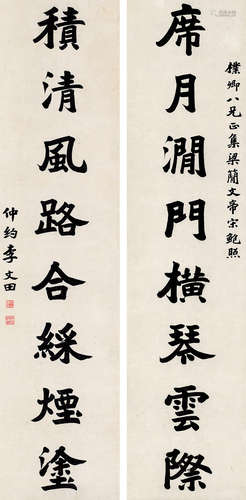 席月澗門橫琴雲際
樸卿八兄正集梁簡文帝宋鮑照
積清風路合綵煙塗
仲約李文田